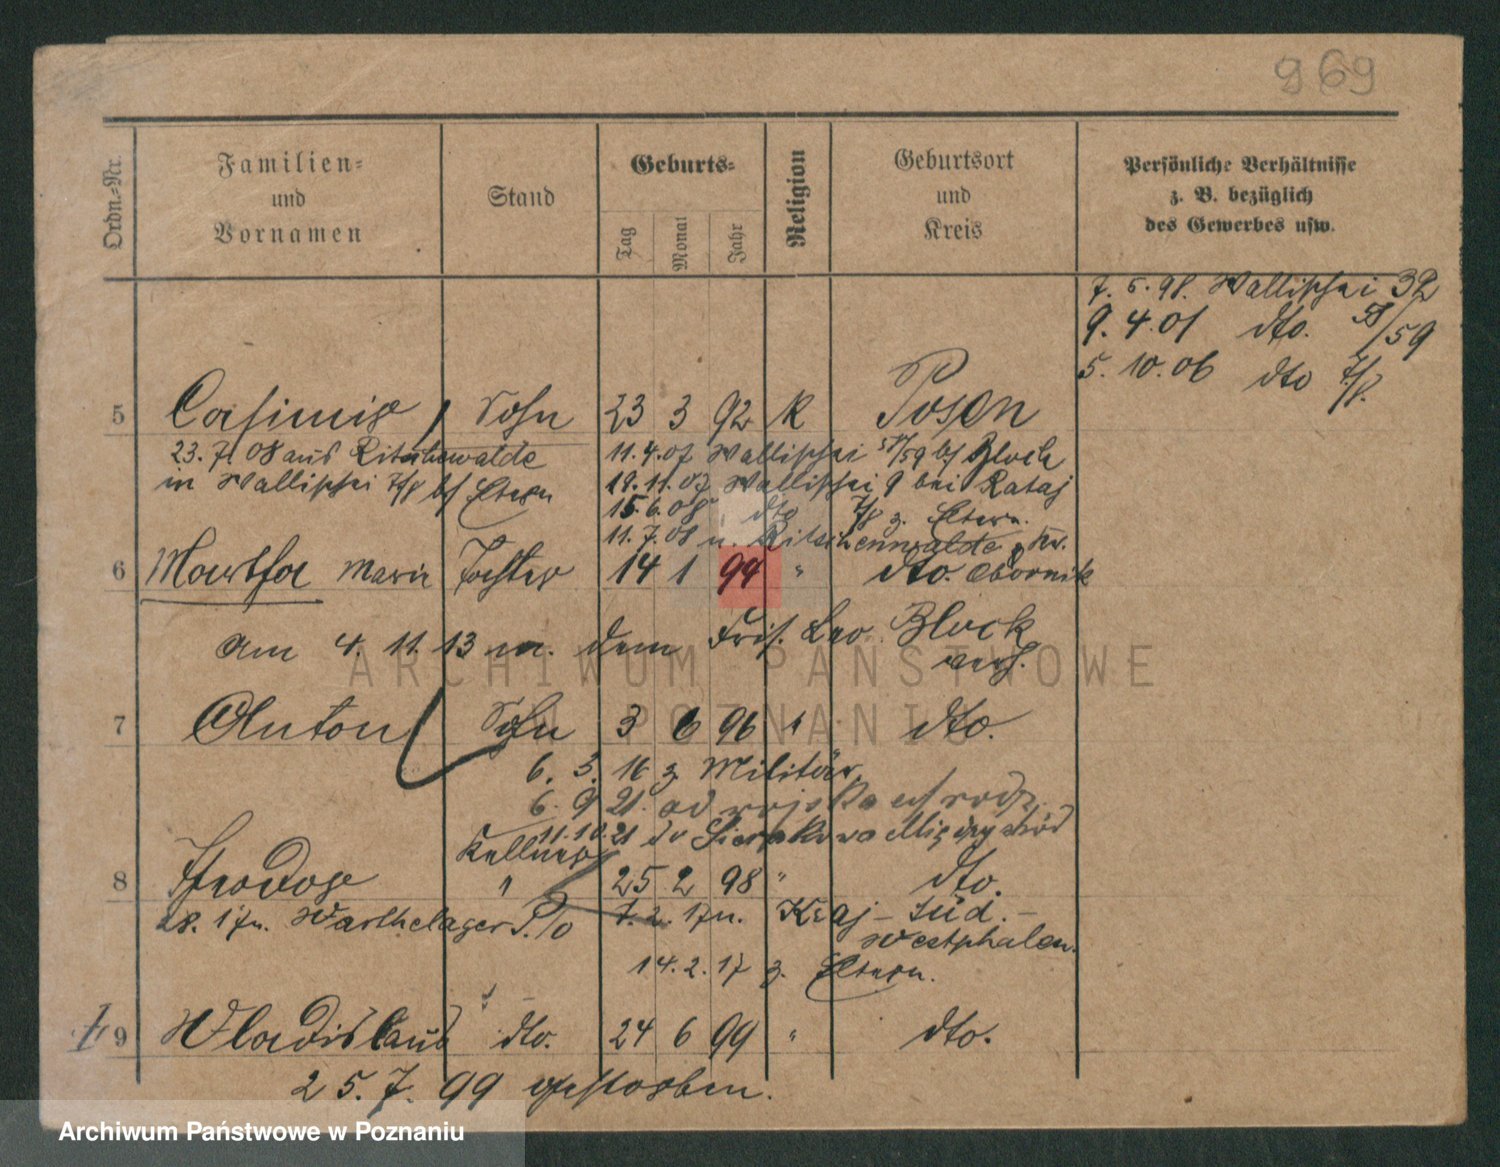 969
Ordn.-Nr.
Familien-
und
Vornamen
Stand
Geburts-
Tag
Monat
Jahr
Religion
Geburtsort
und
Kreis
Persönliche Verhältnisse
z. B. bezüglich
des Gewerbes usw.
7. 5. 98. Wallischei 32
9. 4. 01 dto. 58/59
5. 10. 06 dto 7/8.
5 Casimir Sohn 23 3 92 K Posen
23. 7. 08 aus Ritschenwalde
in Wallischei 7/8 b/ Eltern
11. 4. 07 Wallischei 58/59 b/ Block
19. 11. 07 Wallischei 9 bei Rataj
15. 6. 08 dto 7/8 z. Eltern.
11. 7. 08 n. Ritschenwalde, Kr.
6 Martha Marie Tochter 14 1 94 " dto. Obornik
am 4. 11. 13 m. dem Fris. Leo Block
verh.
7 Anton Sohn 3 6 96 " dto.
6. 3. 16 z. Militär.
6. 9 21. od wojska u/ rodz.
11. 10. 21 do Sierakowa Międzychód
Kellner
8 Theodor " 25 2 98 " dto.
28. 1 17 n. Warthelager P./O 7. 2. 17 n. Kraj - Süd. -
Westphalen.
14. 2. 17 z. Eltern.
9 Wladislaus dto. 24 6 99 " dto.
25. 7. 99 gestorben.
ARCHIWUM PAŃSTWOWE
W POZNANIU
Archiwum Państwowe w Poznaniu